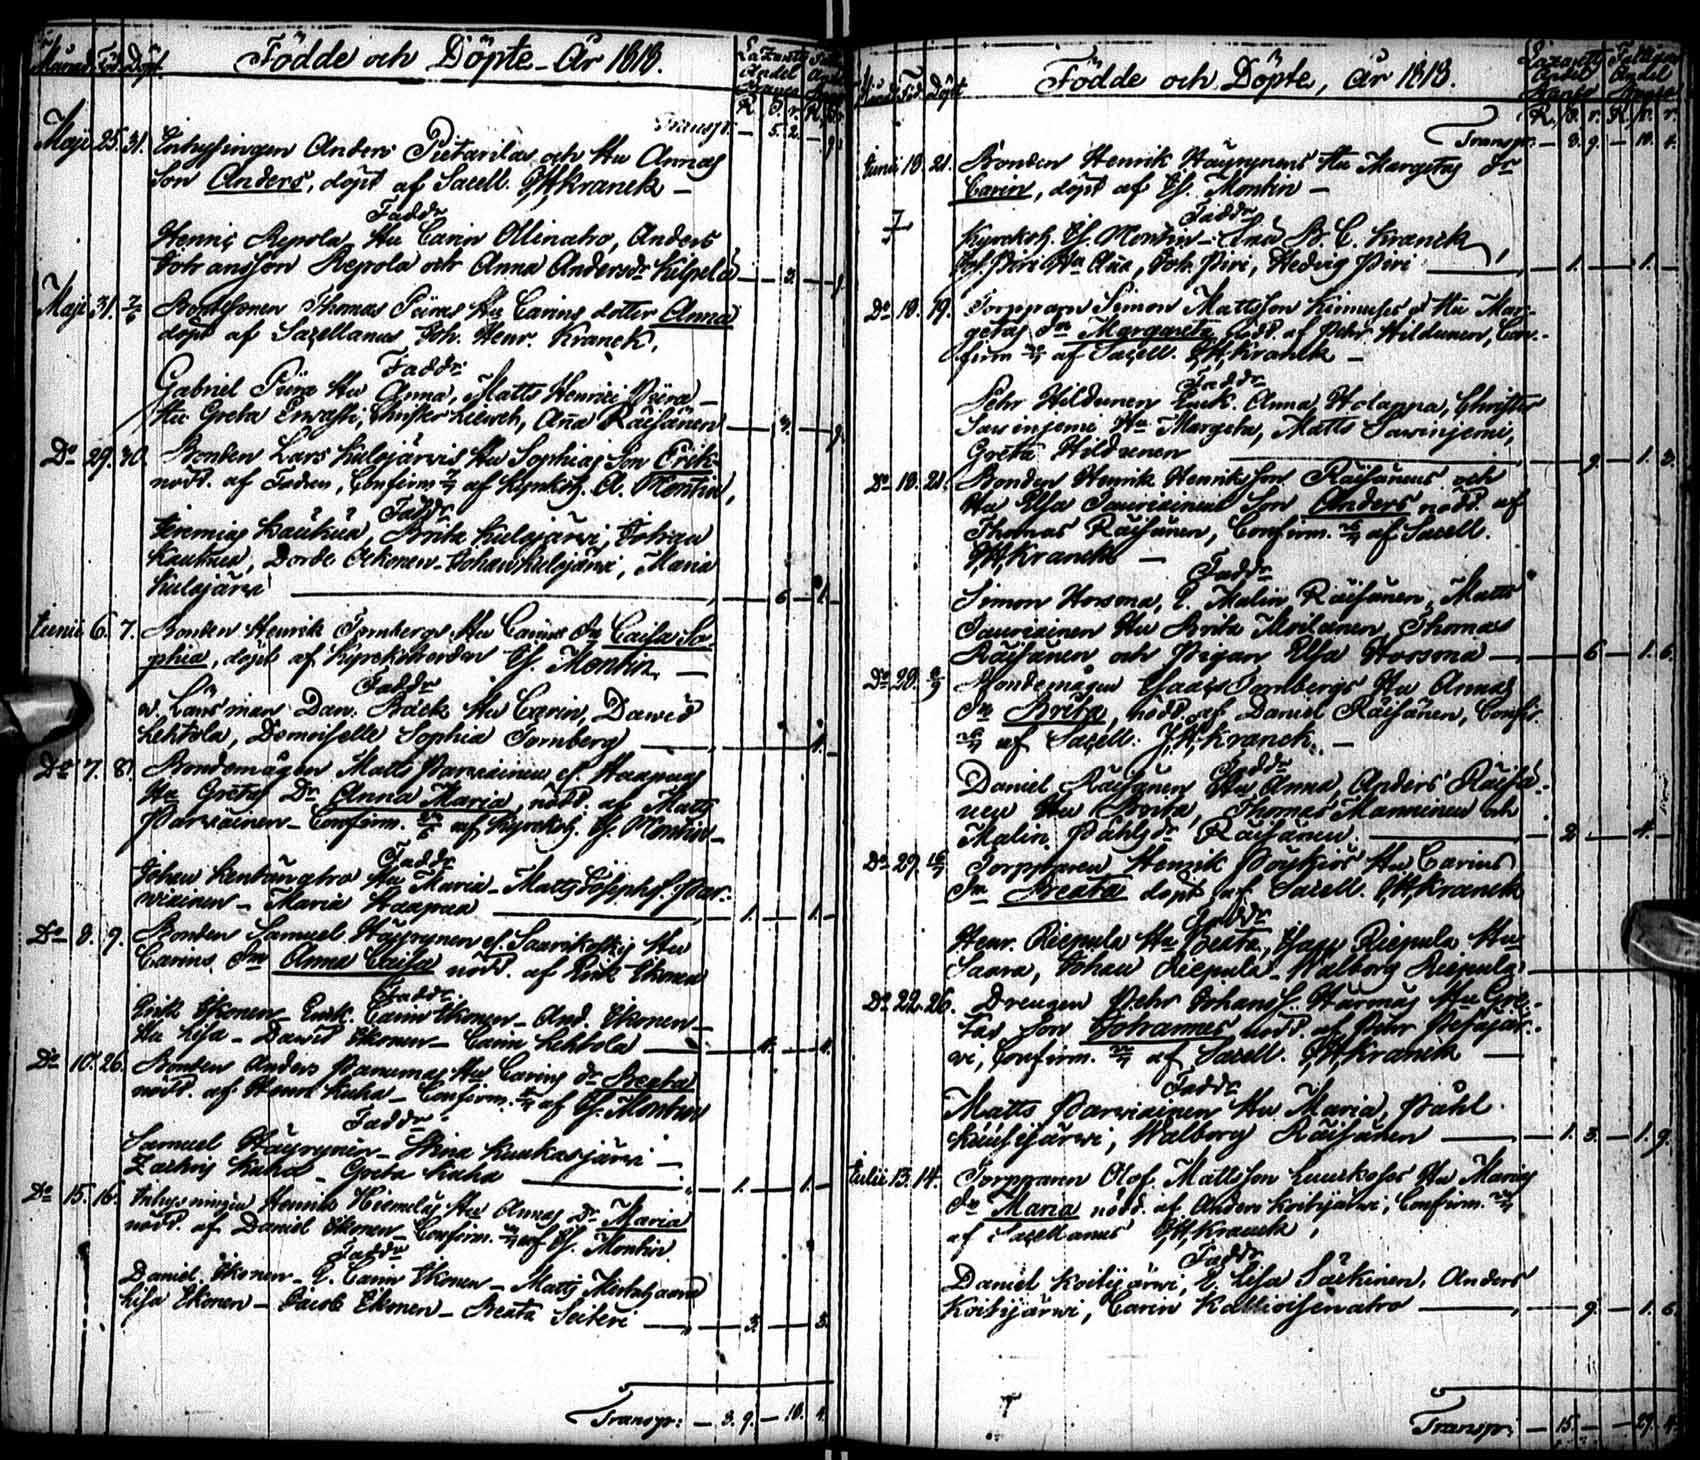 Månad Föd. Döpt.
Födde och Döpte År 1818.
Lazaretts Andel
R. s. r. R. s. r.
Transp: — 5. 2. — 9
Maji 25. 31. Inhysingen Anders Pietarilas och Hu Annas
Son Anders, döpt af Sacell. J. H. Kranck —
Faddr
Henric Repola Hu Carin Ollinaho, Anders
Johansson Repola och Anna Andersdr Kilpelä — 3. —
Maji 31. 7/6 Bondsonen Thomas Piiras Hu Carins dotter Anna
döpt af Sacellanus Joh. Henr. Kranck.
Faddr
Gabriel Piira Hu Anna, Matts Henrici Piira —
Hu Greta Ervasti, Aña Räisänen — 3. — 9
Do 29. 30. Bonden Lars Kulojärvis Hu Sophias Son Erik
nödd. af Fadren, Confirm. af Kyrkoh. E. Montin,
Faddr
Jeremias Kaukua, Brita Kulojärvi, Johan
Kaukua, Johan Kulojärvi, Maria
Kulojärvi — 6 — 1.
Junii 6. 7. Bonden Henrik Tornbergs Hu Carins Dr Caisa So-
phia, döpt af Kyrckoherden Es. Montin —
Faddr
v. Länsman Dan. Back Hu Carin, David
Lehtola, Demoiselle Sophia Tornberg — 1.
Do 7. 8. Bondemågen Matts Parviainen ef. Haapaas
Hu Gretas Dr Anna Maria, nödd. af Matts
Parviainen — Confirm. af Kyrckoh. Es. Montin —
Faddr
Johan Hu Maria — Matts Josephs. Par-
viainen — Maria Haapaa — 1. — 1. —
Do 8. 9. Bonden Samuel Häyrynen ef. Saarikoskis Hu
Carins Dr Anna Caisa nödd. af Erik Ekonen
Faddr
Erik Ekonen — Enk. Carin Ekonen — And. Ekonen —
Hu Lisa — David Ekonen — Carin Lehtola — 4. — 4.
Do 10. 26. Bonden Anders Panumas Hu Carins Dr Beata
nödd. af Henr. Kuha — Confirm. af Es. Montin
Faddr
Samuel Häyrynen — Stina Kuukasjärvi —
Zachris Kuha — Greta Kuha — 1. — 1. —
Do 15. 16. Inhysningen Henrik Hiemelas Hu Annas Dr Maria
nödd. af Daniel Ekonen — Confirm. af Es. Montin
Faddr
Daniel Ekonen — E. Carin Ekonen — Matts
Lisa Ekonen — Jacob Ekonen — Beata Seiteri — 3. — 3.
Transp: — 3. 9. — 10. 4.
Månad Föd. Döpt
Födde och Döpte, År 1818.
Lazaretts Andel Fattigas Andel
R. s. r. R. s. r.
Transp: — 3. 9. — 10. 4.
Junii 18. 21. Bonden Henrik Häyrynens Hu Margetas Dr
Carin, döpt af Es. Montin —
Faddr
Kyrckoh. Es. Montin — B. C. Kranck
Joh. Piri Hu Aña, Joh. Piri, Hedvig Piri — 1. — 1. —
Do 18. 19. Torpparn Simon Mattsson Hu Mar-
getas Dr Margareta nödd. af Pehr Hildunen, Con-
firm af Sacell. J. H. Kranck —
Faddr
Pehr Hildunen Enk. Anna Holappa, Christer
Savinjemi Hu Margeta, Matts Savinjemi,
Greta Hildunen — 9. — 1. 3.
Do 18. 21. Bonden Henrik Henriksson Räisänens och
Hu Elsa Tauriainens Son Anders nödd. af
Thomas Räisänen, Confirm. af Sacell.
J. H. Kranck —
Faddr
Simon Horsma, E. Malin Räisänen, Matts
Tauriainen Hu Brita Moilanen, Thomas
Räisänen och Pigan Elsa Horsma — 6 — 1. 6.
Do 20. Bondemågen Esaias Tornbergs Hu Annas
Dr Brita, nödd. af Daniel Räisänen, Confir.
af Sacell. J. H. Kranck. —
Faddr
Daniel Räisänen Hu Anna, Anders Räisä-
nen Hu Brita, Thomas Manninen och
Malin Påhlsdr Räisänen — 2 — 4. —
Do 27. Torpparen Henrik Hu Carins
Dr Beata döpt af Sacell. J. H. Kranck
Faddr
Henr. Riepula Hu Beata, Esaj Riepula Hu
Saara, Johan Riepula — Walborg Riepula —
Do 22. 26. Drengen Pehr Johanss. Härmäs Hu Gre-
tas Son Johannes nödd. af Pehr Pesäjär-
vi, Confirm. af Sacell. J. H. Kranck —
Faddr
Matts Parviainen Hu Maria, Påhl
Walborg Räisänen — 1. 3. — 1. 9.
Julii 13. 14. Torpparen Olof Mattsson Hu Marias
Dr Maria nödd. af Anders Koitijärvi, Confirm.
af Sacellanus J. H. Kranck,
Faddr
Daniel Koitijärvi, E. Lisa Särkinen, Anders
Koitijärvi, Carin Kallioisenaho — 9. — 1. 6.
Transp: — 15. — 29. 4.